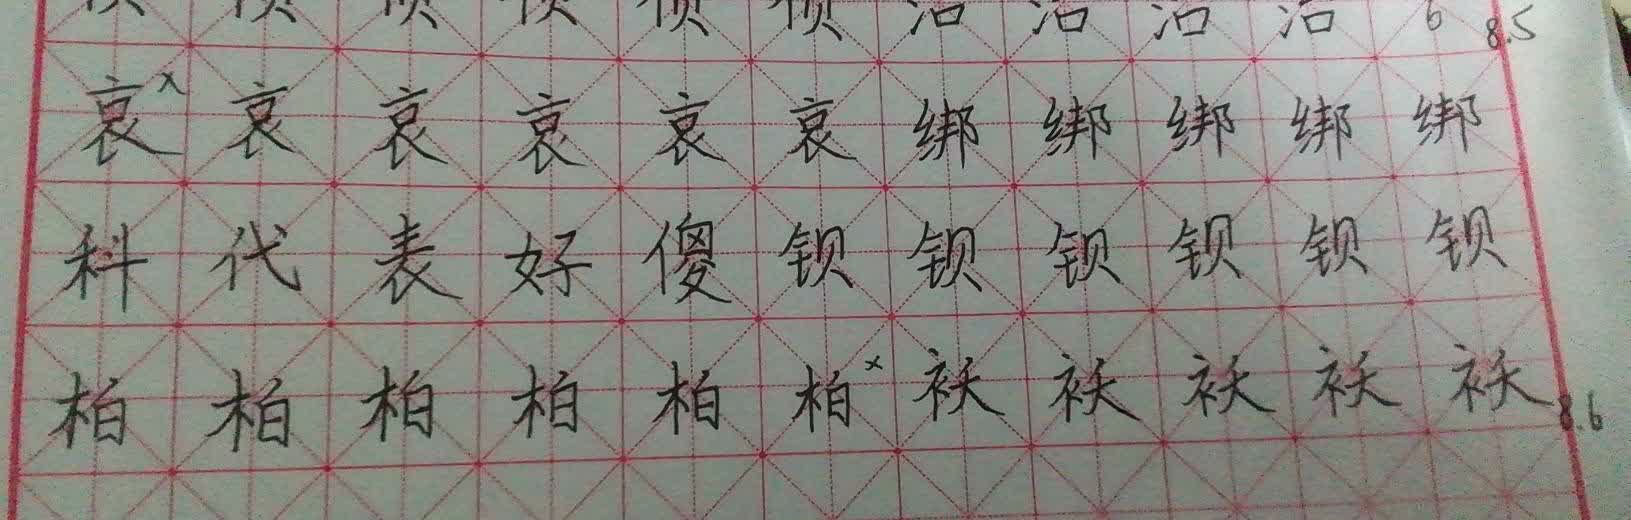 8.5
哀×哀哀哀哀哀绑绑绑绑绑
科代表好傻钡钡钡钡钡钡
柏柏柏柏柏柏×袄袄袄袄袄 8.6